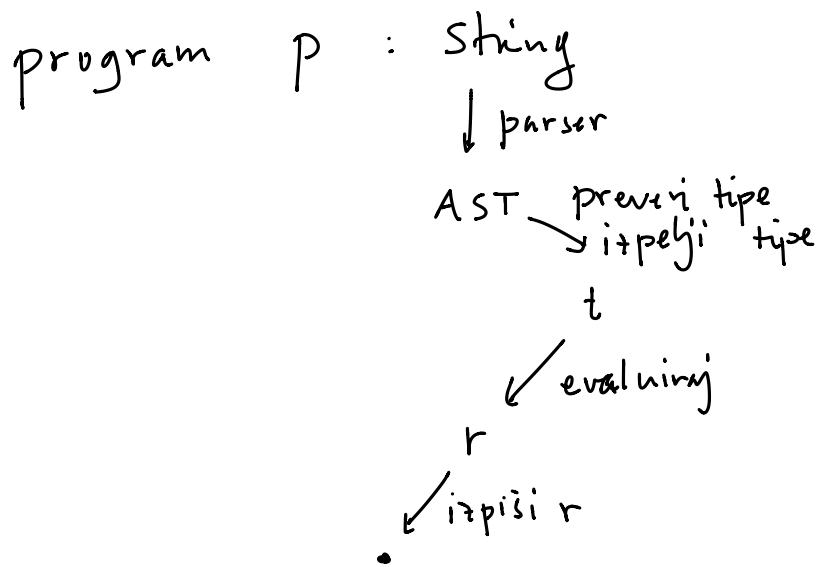 program p : String
parser
AST preveri tipe
izpelji tipe
t
evaluiraj
r
izpiši r